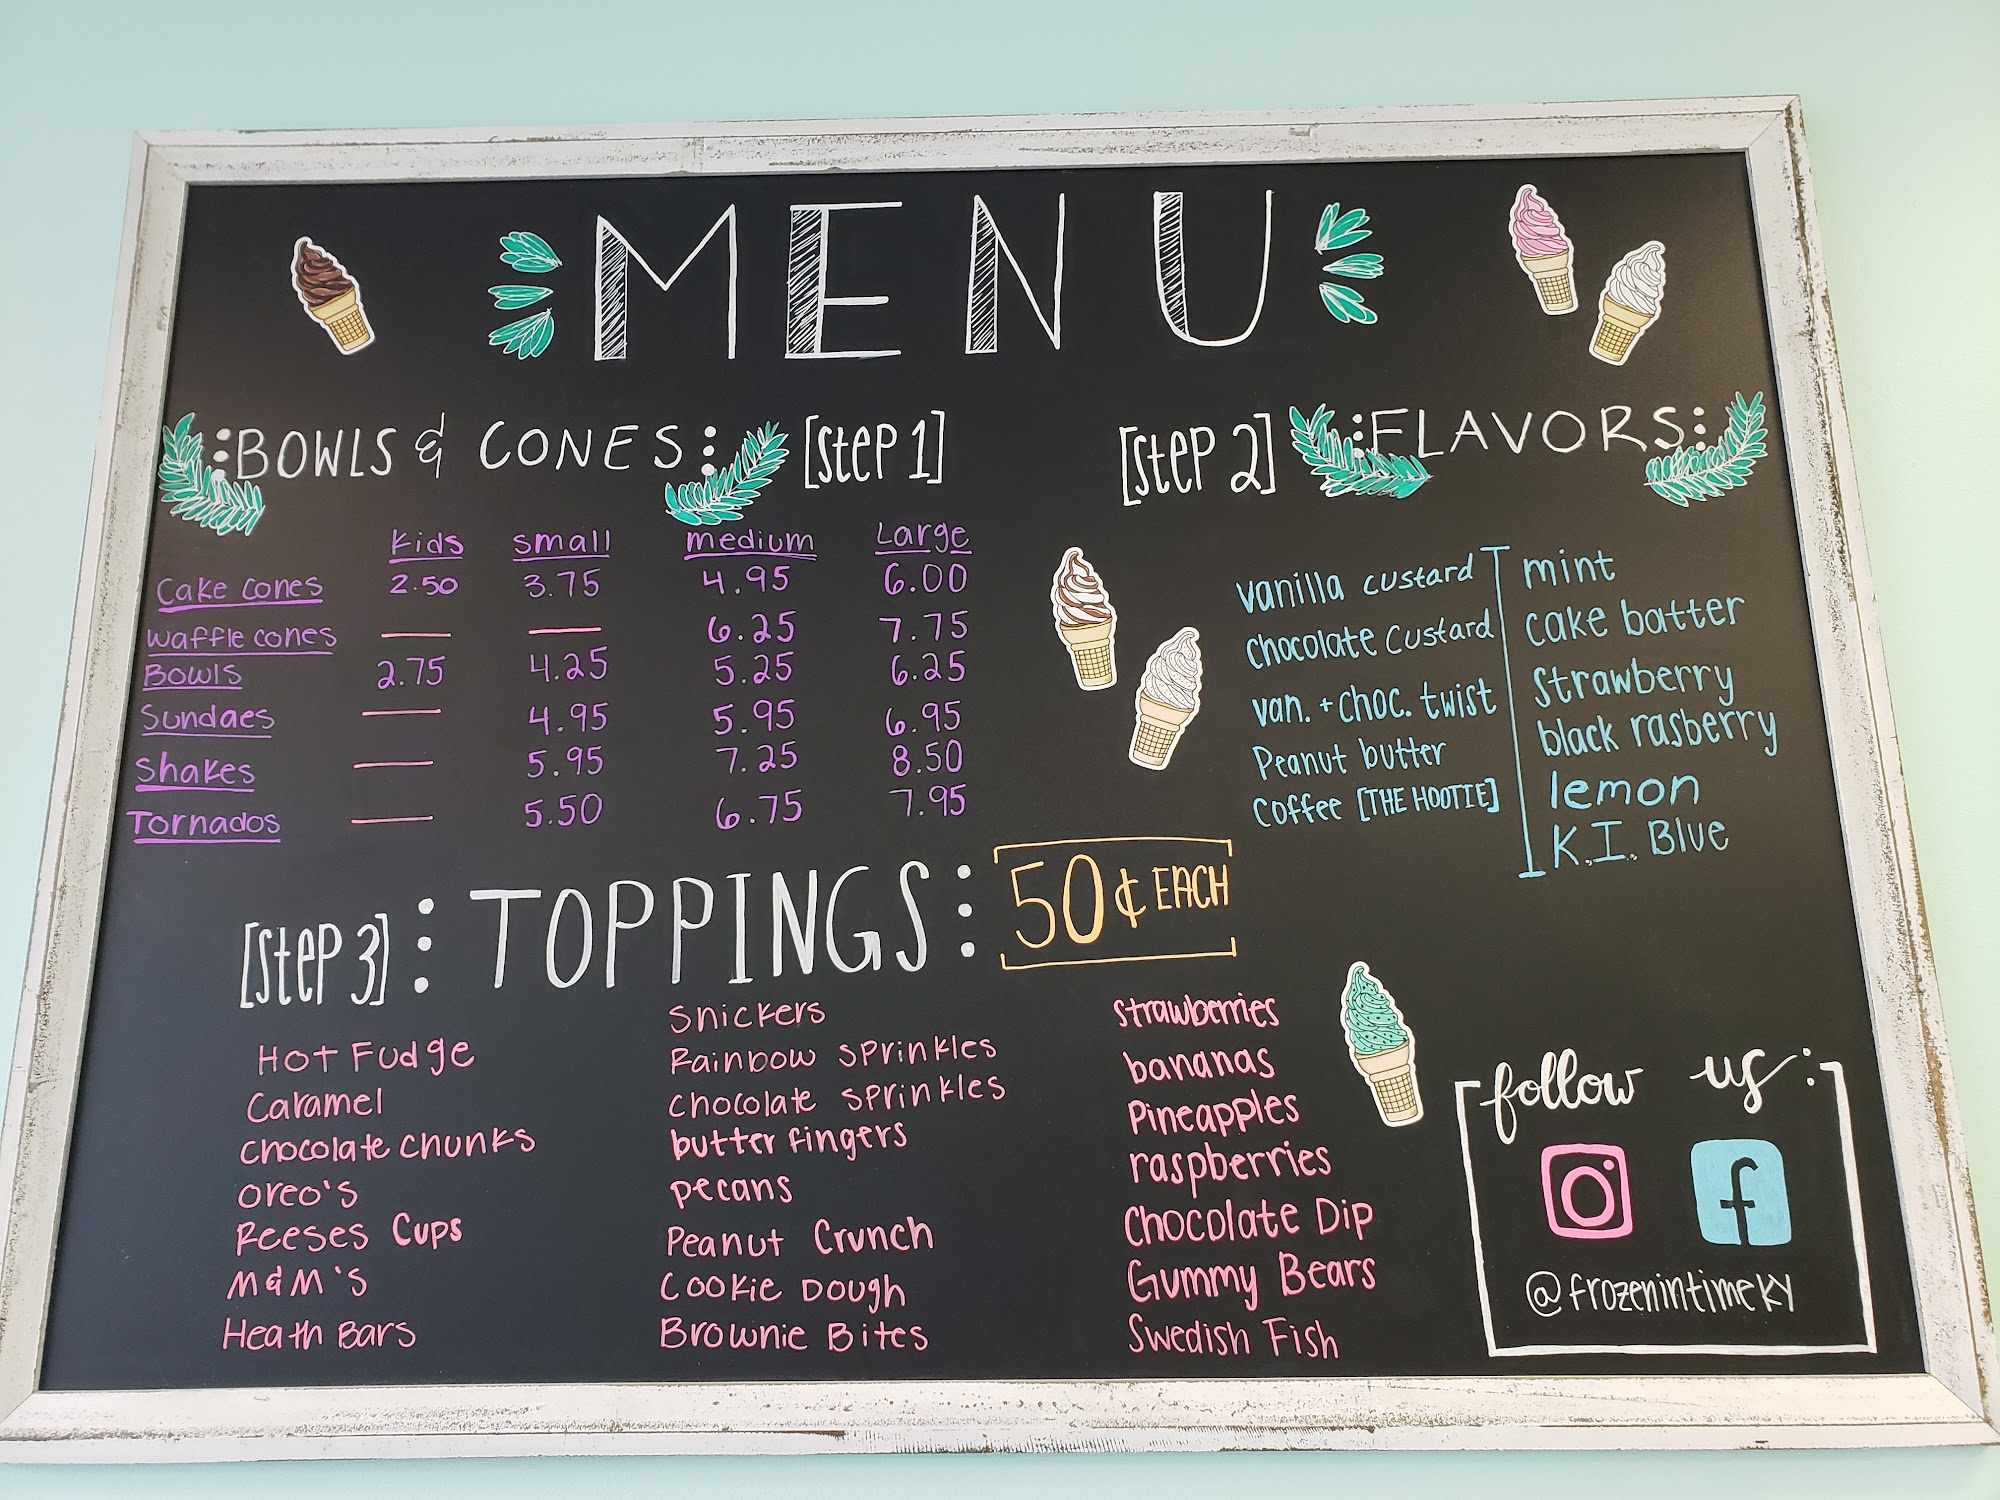 MENU
BOWLS & CONES [Step 1]
Kids small medium Large
Cake cones 2.50 3.75 4.95 6.00
waffle cones — — 6.25 7.75
Bowls 2.75 4.25 5.25 6.25
Sundaes — 4.95 5.95 6.95
Shakes — 5.95 7.25 8.50
Tornados — 5.50 6.75 7.95
[Step 2] FLAVORS
vanilla custard
chocolate custard
van. + choc. twist
Peanut butter
coffee [THE HOOTIE]
mint
cake batter
strawberry
black rasberry
lemon
K.I. Blue
[Step 3] TOPPINGS 50¢ EACH
Hot Fudge
Caramel
chocolate chunks
oreo's
Reeses Cups
M&M's
Heath Bars
Snickers
Rainbow sprinkles
chocolate sprinkles
butterfingers
pecans
Peanut Crunch
Cookie Dough
Brownie Bites
strawberries
bananas
Pineapples
raspberries
Chocolate Dip
Gummy Bears
Swedish Fish
follow us:
f
@frozenintimeky